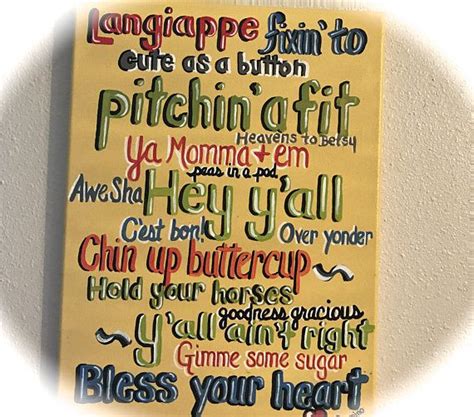 Langiappe fixin' to
cute as a button
pitchin' a fit
Heavens to Betsy
Ya Momma + em
peas in a pod
Awe Sha Hey y'all
C'est bon! Over yonder
Chin up buttercup ~
Hold your horses
goodness gracious
~ y'all ain't right
Gimme some sugar
Bless your heart